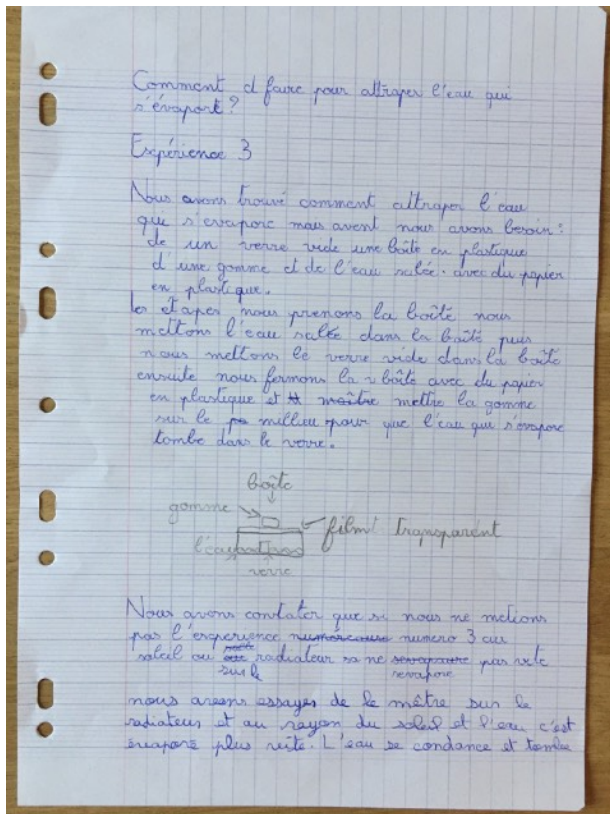 Comment et faire pour attraper l'eau qui
s'évapore ?
Expérience 3
Nous avons trouvé comment attraper l'eau
que s'evapore mais avent nous avons besoin :
de un verre vide une boîte en plastique
d'une gomme et de l'eau salée. avec du papier
en plastique.
les étapes nous prenons la boîte nous
mettons l'eau salée dans la boîte puis
nous mettons le verre vide dans la boîte
ensuite nous fermons la boîte avec du papier
en plastique et maître mettre la gomme
sur le millieu pour que l'eau qui s'évapore
tombe dans le verre.
boîte
gomme
film transparent
l'eau
verre
Nous avons contater que si nous ne metions
pas l'experience numero 3 au
soleil ou sur le radiateur sa ne sevapore pas vite
nous avons essayer de le mêtre sur le
radiateur et au rayon du soleil et l'eau c'est
évaporé plus vite. L'eau se condance et tombe